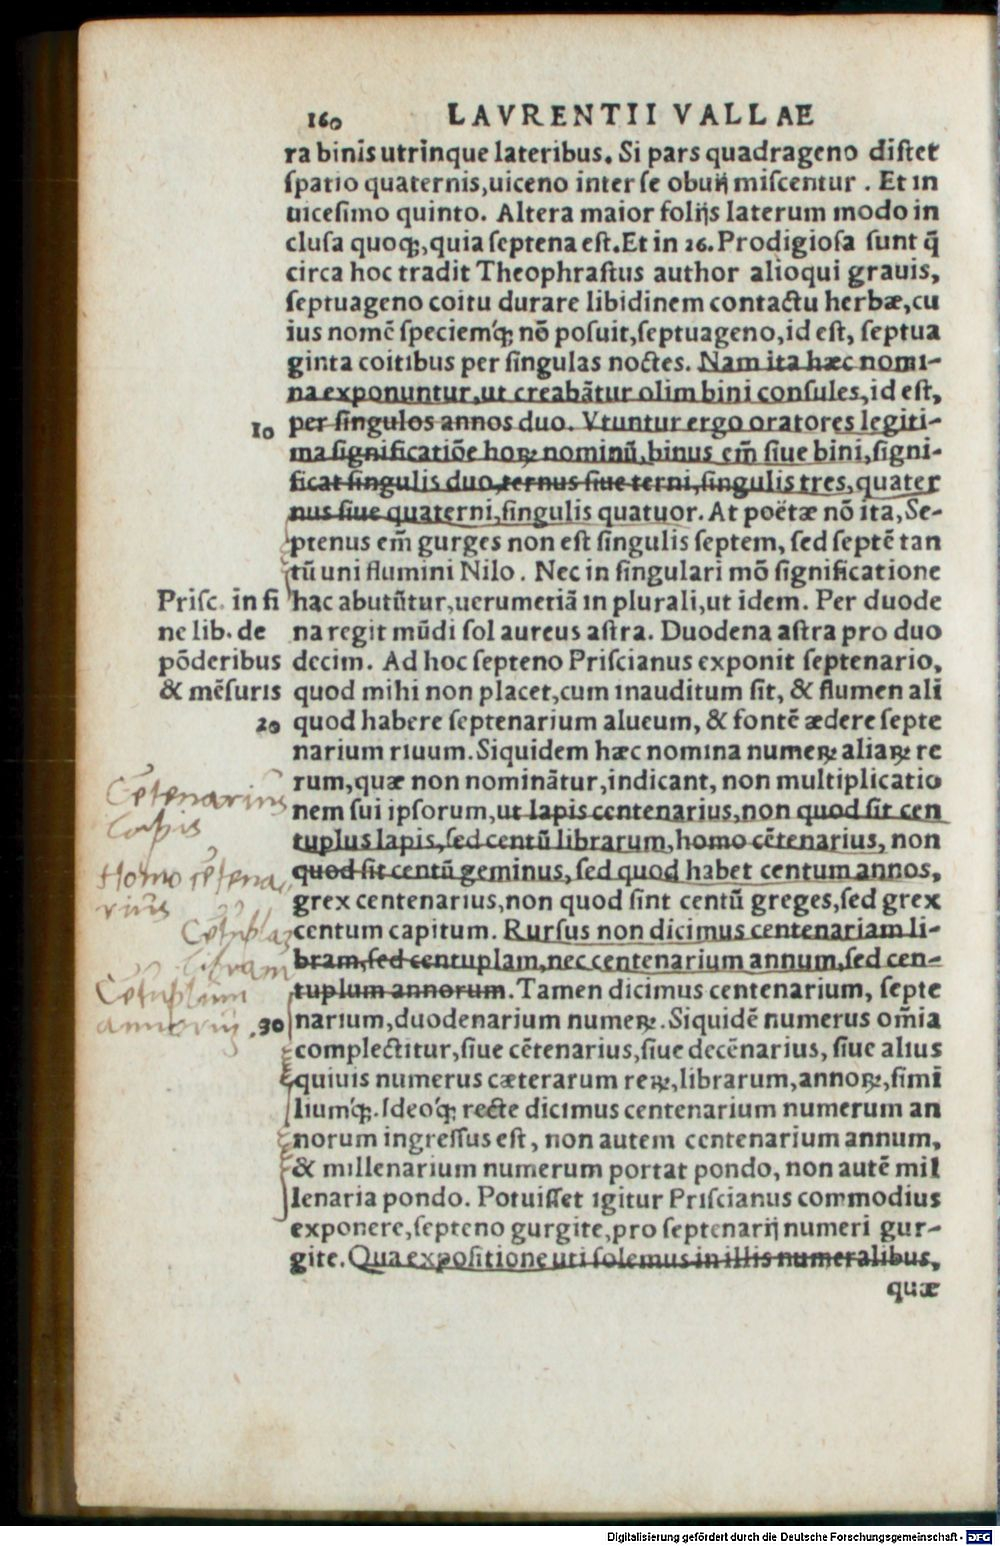 160 LAVRENTII VALLAE
ra binis utrinque lateribus. Si pars quadrageno distet
spatio quaternis, uiceno inter se obuij miscentur. Et in
uicesimo quinto. Altera maior folijs laterum modo in
clusa quoqꝫ, quia septena est. Et in 26. Prodigiosa sunt q̃
circa hoc tradit Theophrastus author alioqui grauis,
septuageno coitu durare libidinem contactu herbæ, cu
ius nomẽ speciemq́ꝫ nõ posuit, septuageno, id est, septua
ginta coitibus per singulas noctes. Nam ita hæc nomi-
na exponuntur, ut creabãtur olim bini consules, id est,
10 per singulos annos duo. Vtuntur ergo oratores legiti-
ma significatiõe hoꝝ nominũ, binus em̃ siue bini, signi-
ficat singulis duo, ternus siue terni, singulis tres, quater
nus siue quaterni, singulis quatuor. At poëtæ nõ ita, Se-
ptenus em̃ gurges non est singulis septem, sed septẽ tan
tũ uni flumini Nilo. Nec in singulari mõ significatione
Prisc. in fi hac abutũtur, uerumetiã in plurali, ut idem. Per duode
ne lib. de na regit mũdi sol aureus astra. Duodena astra pro duo
põderibus decim. Ad hoc septeno Priscianus exponit septenario,
& mẽsuris quod mihi non placet, cum inauditum sit, & flumen ali
20 quod habere septenarium alueum, & fontẽ ædere septe
narium riuum. Siquidem hæc nomina numeꝝ aliaꝝ re
rum, quæ non nominãtur, indicant, non multiplicatio
Cẽtenarius nem sui ipsorum, ut lapis centenarius, non quod sit cen
lapis tuplus lapis, sed centũ librarum, homo cẽtenarius, non
Homo cẽtena- quod sit centũ geminus, sed quod habet centum annos,
rius grex centenarius, non quod sint centũ greges, sed grex
Cẽtuplaꝫ centum capitum. Rursus non dicimus centenariam li-
libram bram, sed centuplam, nec centenarium annum, sed cen-
Cẽtuplum tuplum annorum. Tamen dicimus centenarium, septe
annorũ 30 narium, duodenarium numeꝝ. Siquidẽ numerus om̃ia
complectitur, siue cẽtenarius, siue decẽnarius, siue alius
quiuis numerus cæterarum reꝝ, librarum, annoꝝ, simĩ
liumq́ꝫ. Ideoq́ꝫ recte dicimus centenarium numerum an
norum ingressus est, non autem centenarium annum,
& millenarium numerum portat pondo, non autẽ mil
lenaria pondo. Potuisset igitur Priscianus commodius
exponere, septeno gurgite, pro septenarij numeri gur-
gite. Qua expositione uti solemus in illis numeralibus,
quæ
Digitalisierung gefördert durch die Deutsche Forschungsgemeinschaft - DFG